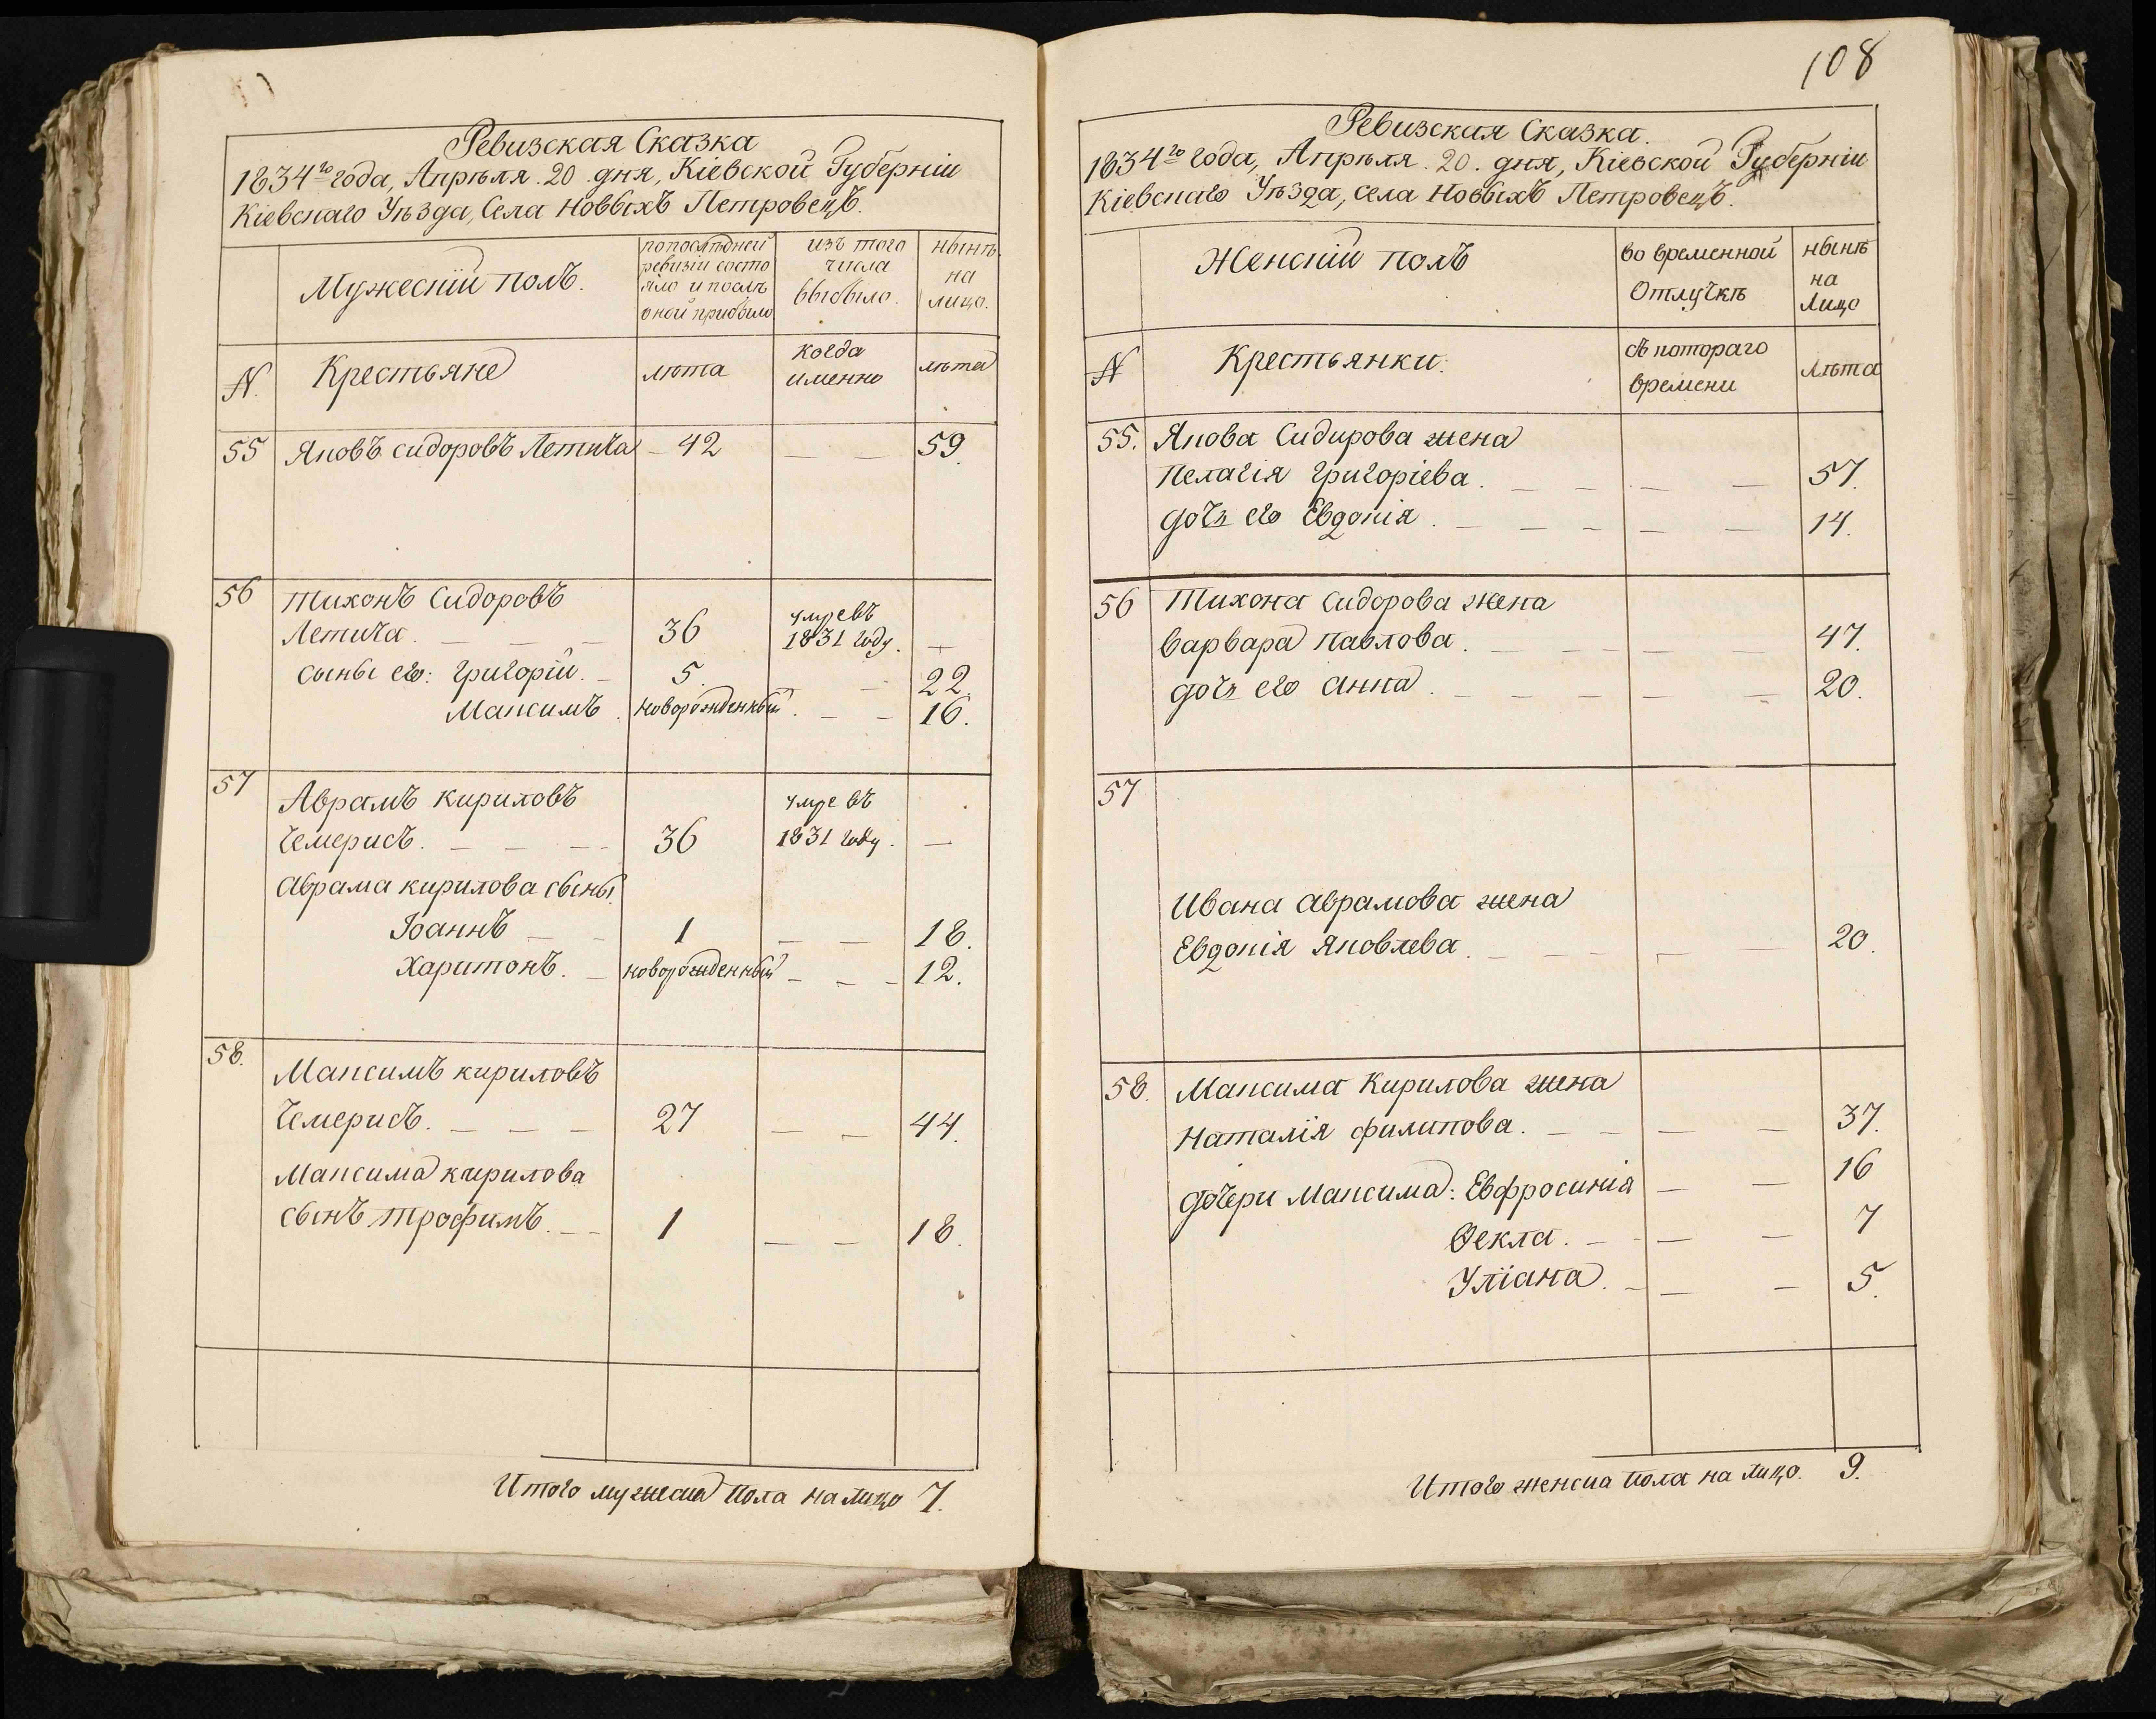 Ревизская Сказка
1834го года, Апрѣля. 20 дня, Кіевской Губерніи
Кіевскаго Уѣзда, Села Новыхъ Петровецъ.
Мужескій полъ.
по послѣдней
ревизіи состо
яло и послѣ
оной прибыло
изъ того
числа
выбыло.
нынѣ
на
лицо.
N.
Крестьяне
лѣта
когда
именно
лѣта
55 Яковъ Сидоровъ Летича – 42 — — 59.
56 Тихонъ Сидоровъ
умре въ
Летича. — — — 36 1831 году. —
сыны его: Григорій. – 5. — 22.
Максимъ. новорожденный. — — 16.
57 Аврамъ Кириловъ
умре въ
Чемерисъ. — — — 36 1831 году. —
Аврама Кирилова сыны
Іоаннъ — – 1 — — 18.
Харитонъ. – новорожденный – – – 12.
58.
Максимъ Кириловъ
Чемерисъ. — — — 27 — — 44.
Максима Кирилова
сынъ Трофимъ. — 1 — — 18.
Итого мужеска пола на лицо 7.
108
Ревизская Сказка.
1834го года, Апрѣля. 20. дня, Кіевской Губерніи
Кіевскаго Уѣзда, села Новыхъ Петровецъ.
Женскій полъ
во временной
Отлучкѣ
нынѣ
на
Лицо
N
Крестьянки.
съ котораго
времени
Лѣта
55. Якова Сидирова жена
Пелагія Григоріева. — — — — 57.
дочь его Евдокія. — — — — — 14.
56 Тихона Сидорова жена
Варвара Павлова. — — — — — 47.
дочь его Анна. — — — — — 20.
57
Ивана Аврамова жена
Евдокія Яковлева. — — — — — 20.
58. Максима Кирилова жена
Наталія Филипова. — — — — 37.
дочери Максима: Евфросинія — — 16
Ѳекла. — — — 7
Уліана. – — – 5.
Итого женска пола на лицо. 9.